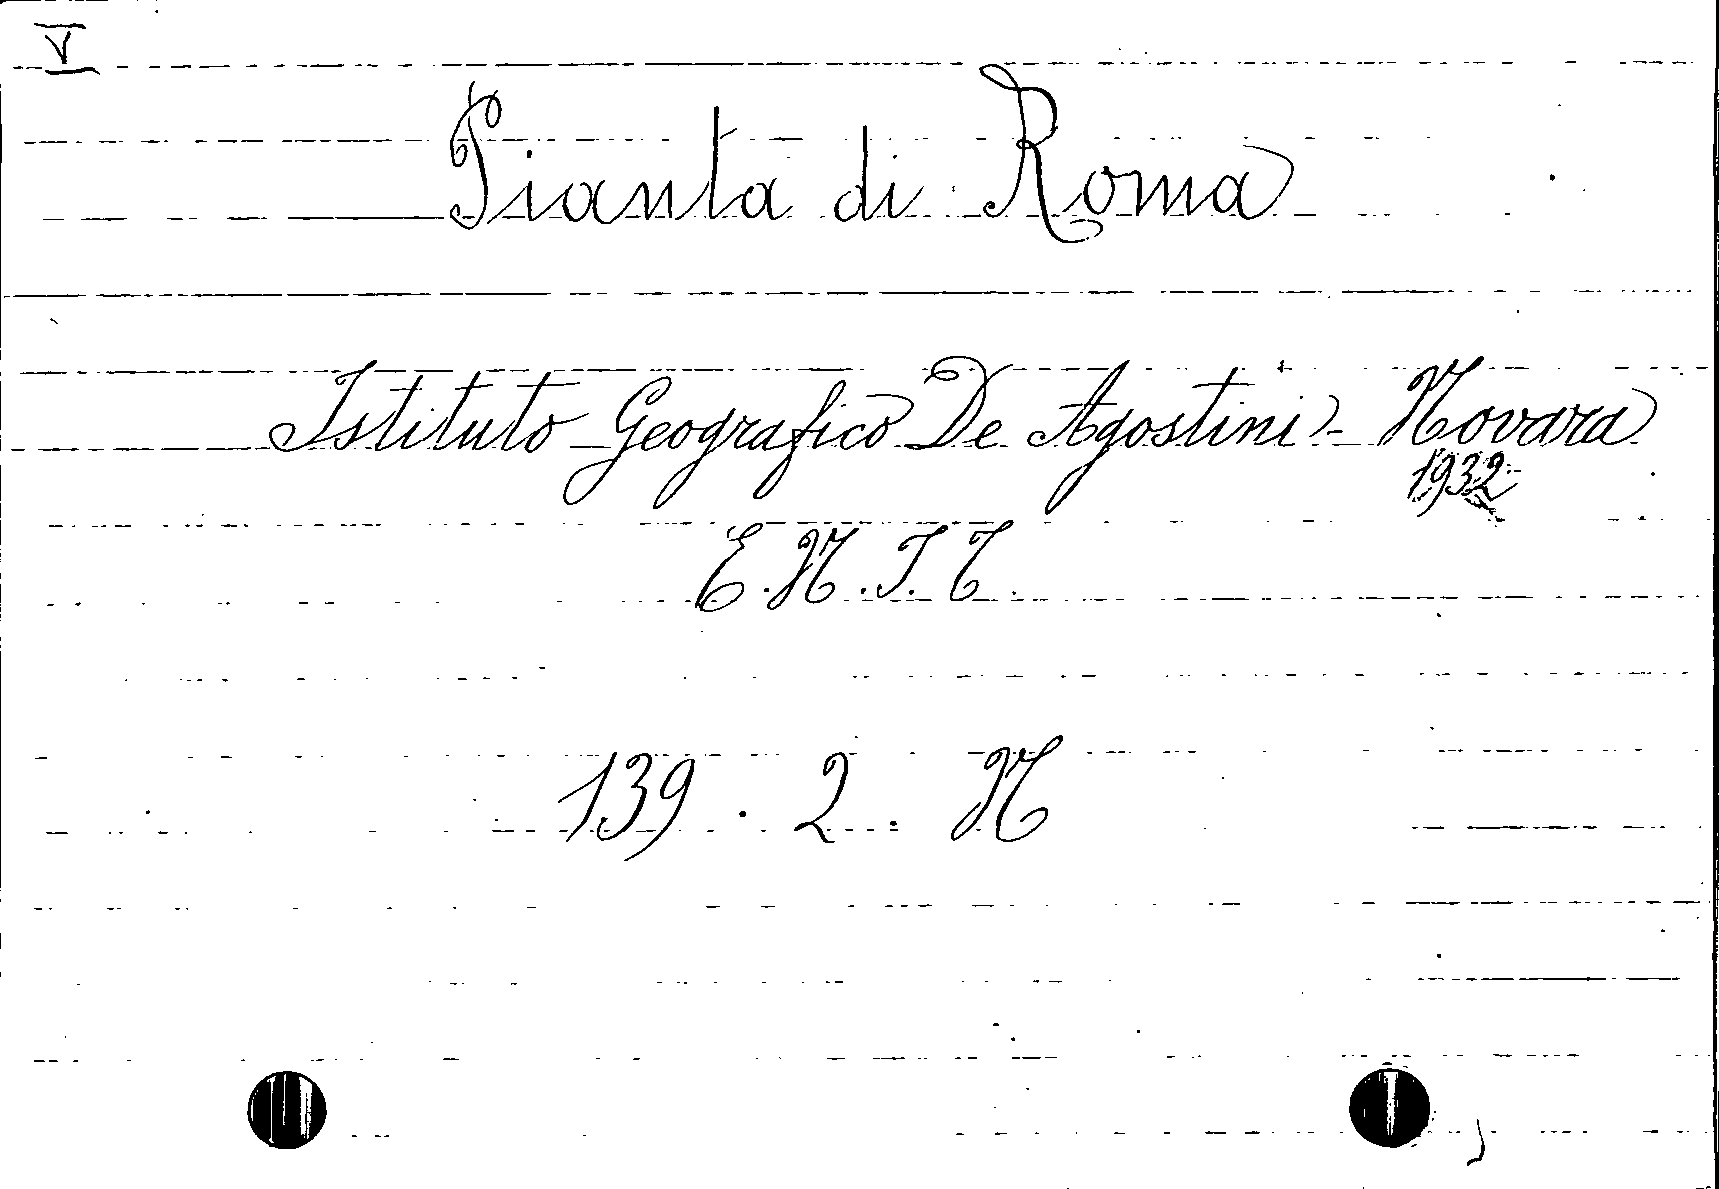 V
Pianta di Roma
Istituto Geografico De Agostini - Novara
1932
E.N.I.T.
139 . 2 . N